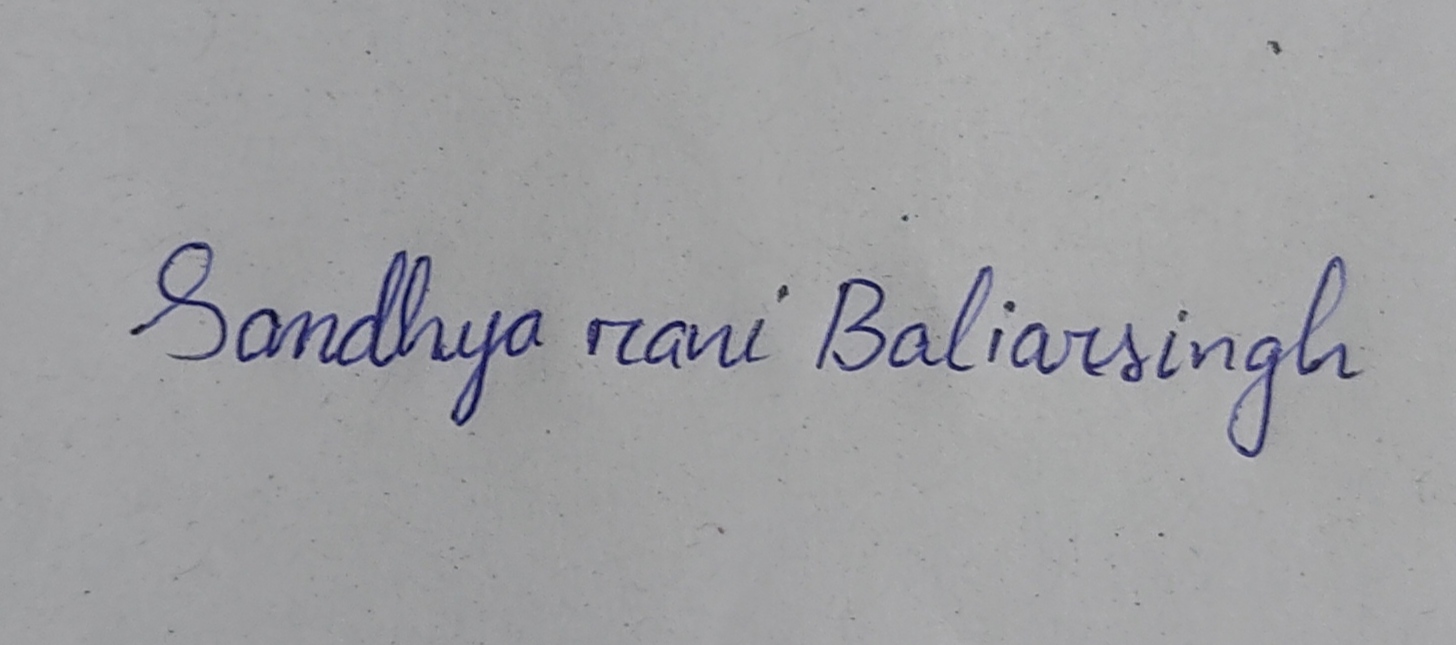 Sandhya rani Baliarsingh